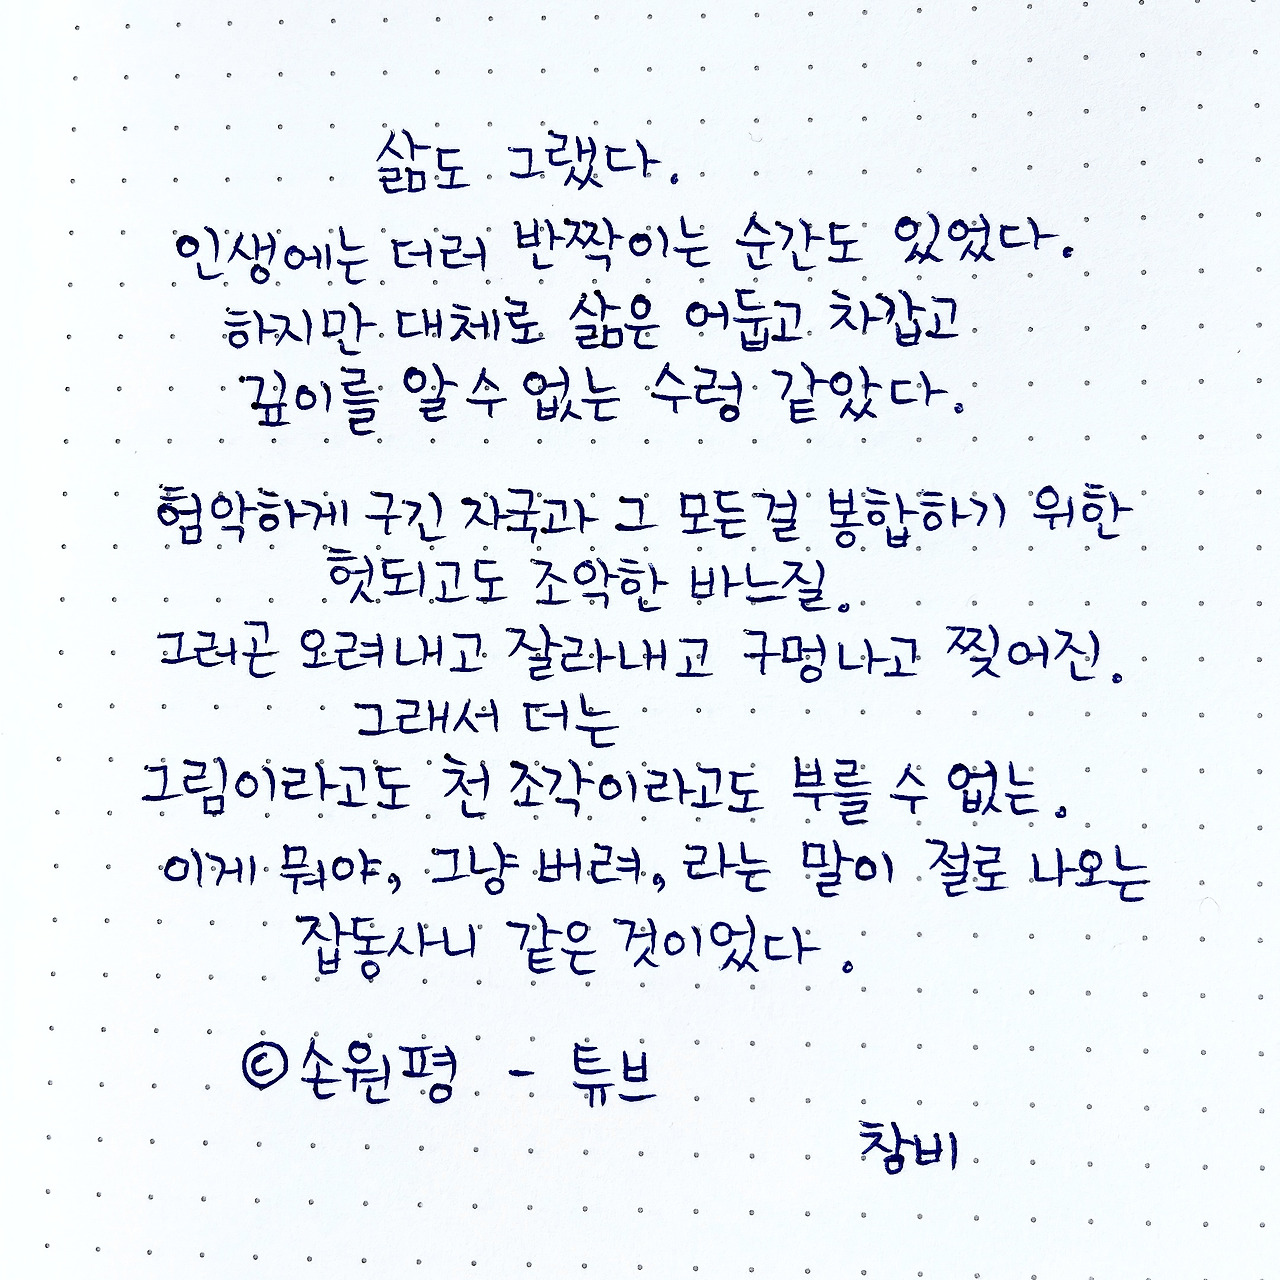 삶도 그랬다.
인생에는 더러 반짝이는 순간도 있었다.
하지만 대체로 삶은 어둡고 차갑고
깊이를 알 수 없는 수렁 같았다.
험악하게 구긴 자국과 그 모든걸 봉합하기 위한
헛되고도 조악한 바느질.
그러곤 오려내고 잘라내고 구멍나고 찢어진.
그래서 더는
그림이라고도 천 조각이라고도 부를 수 없는.
이게 뭐야, 그냥 버려, 라는 말이 절로 나오는
잡동사니 같은 것이었다.
©손원평 - 튜브
창비